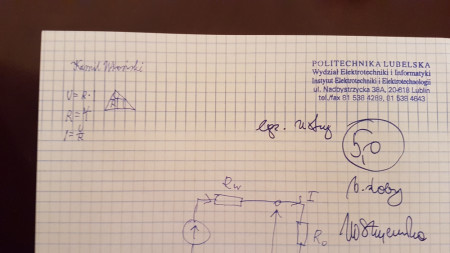 POLITECHNIKA LUBELSKA
Wydział Elektrotechniki i Informatyki
Instytut Elektrotechniki i Elektrotechnologii
ul. Nadbystrzycka 38A, 20-618 Lublin
tel./fax 81 538 4289, 81 538 4643
Kamil
U=R·
R=
I=U/R
egz. ustny
5,0
b. dobry
Rw
I
Ro